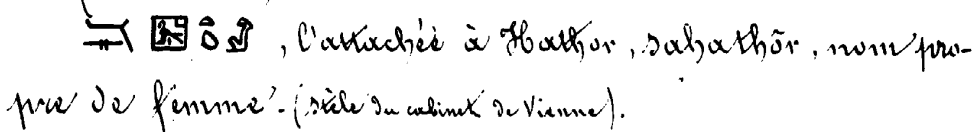 , l'attachée à Hathor, Sahathôr, nom pro-
pre de femme. (Stèle du cabinet de Vienne).